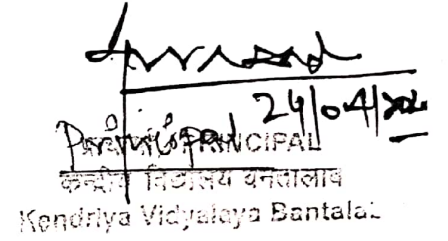 24/04/202
Principal
PRINCIPAL
केन्द्रीय विद्यालय बनतालाब
Kendriya Vidyalaya Bantalab